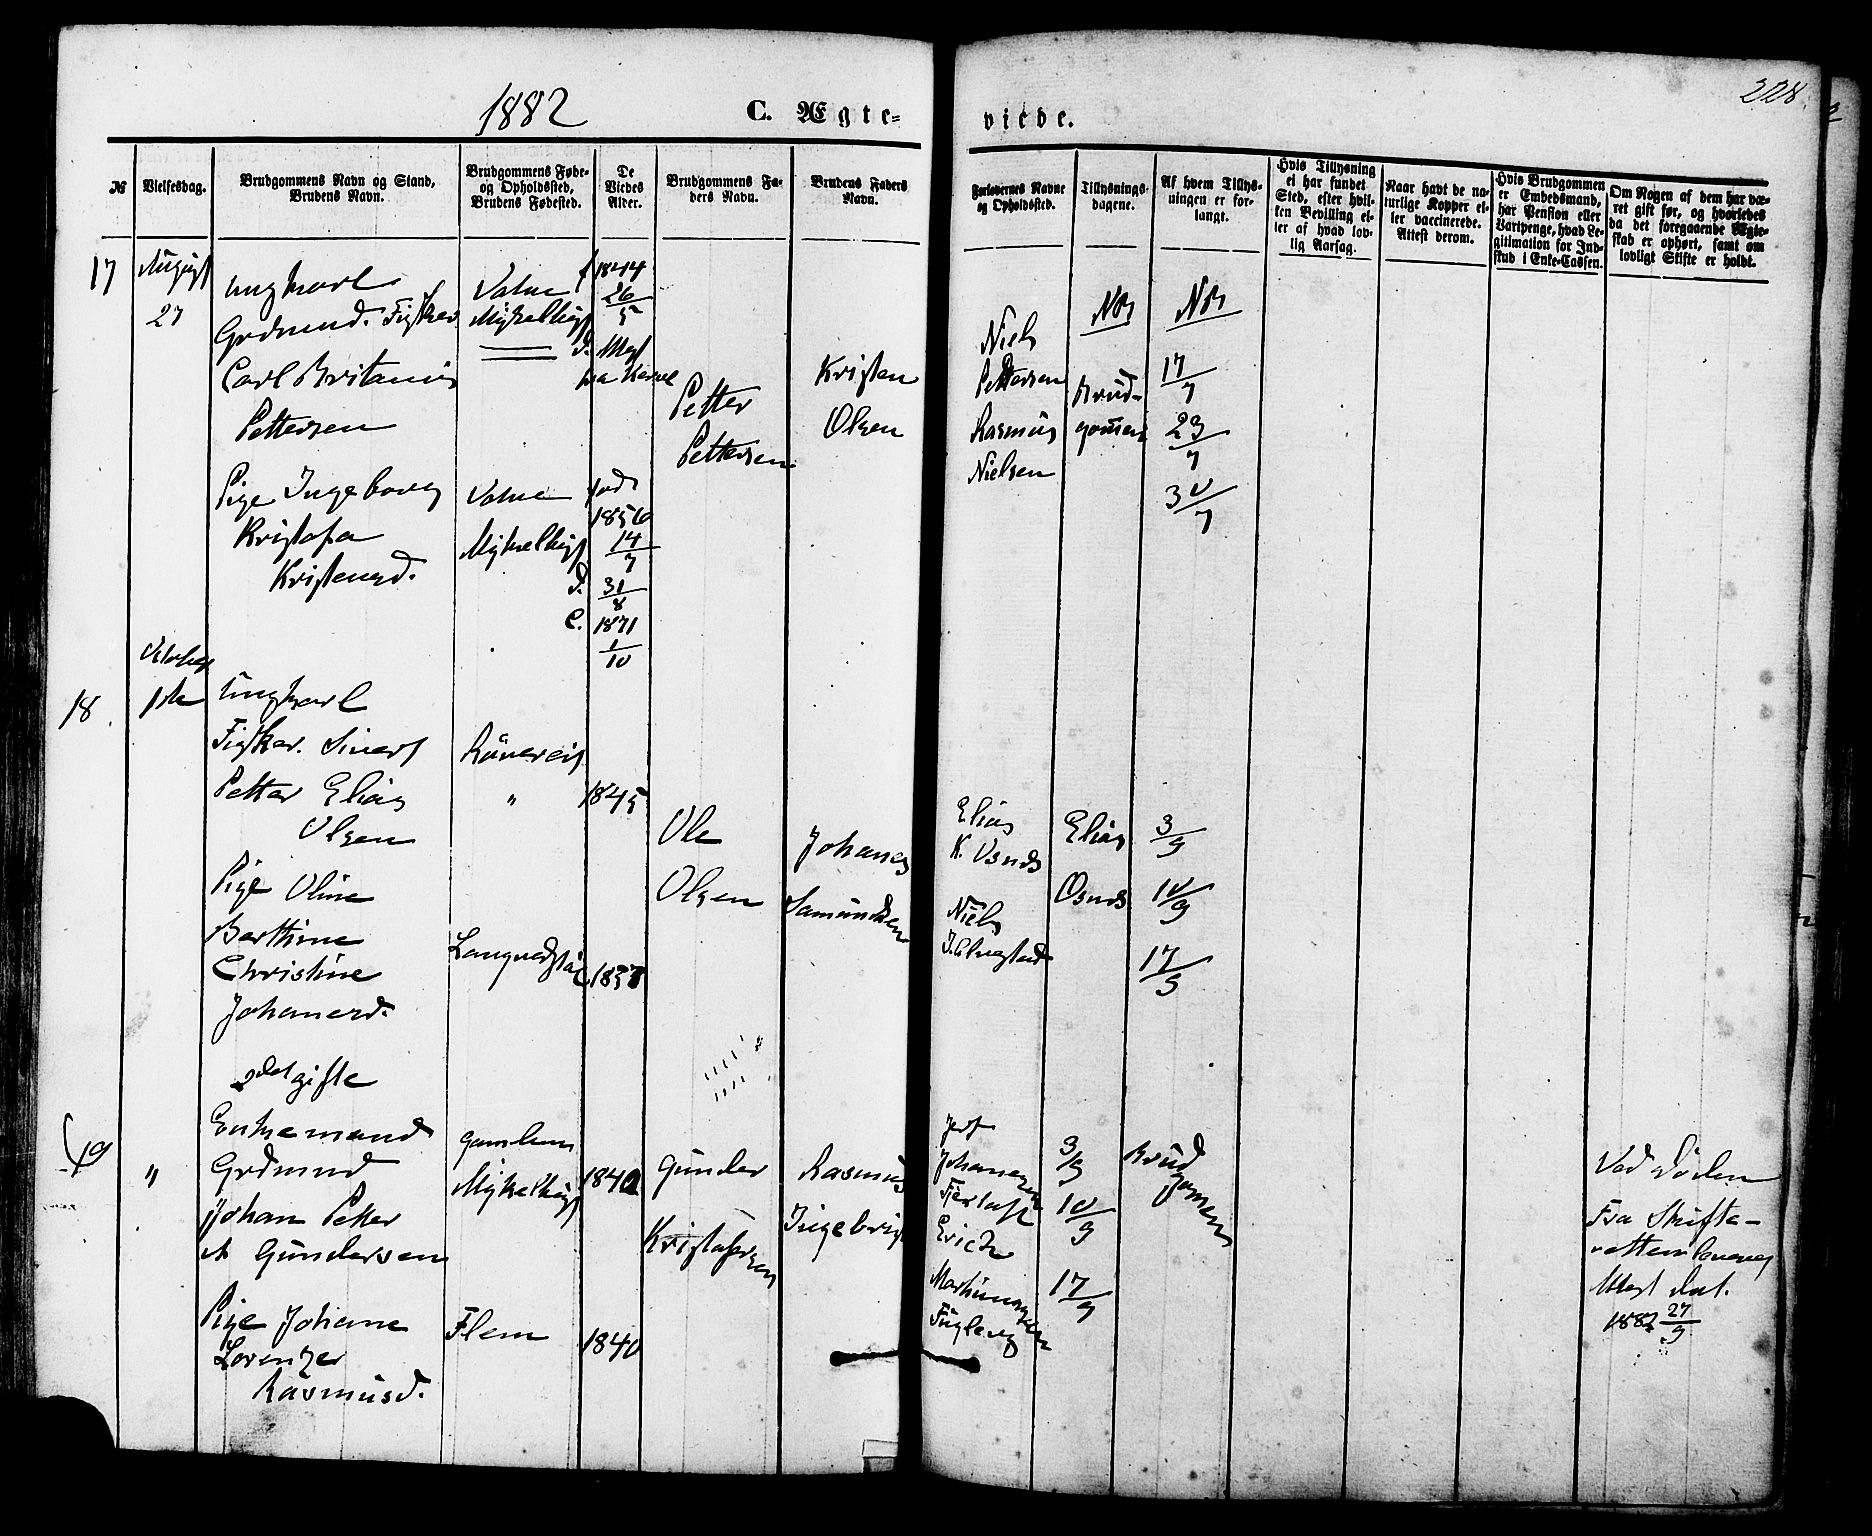 1882
C. Ægte-
viede.
228.
№
Vielsesdag.
Brudgommens Navn og Stand,
Brudens Navn.
Brudgommens Føde-
og Opholdssted,
Brudens Fødested.
De
Viedes
Alder.
Brudgommens Fa-
ders Navn.
Brudens Faders
Navn.
Forlovernes Navne
og Opholdssted.
Tillysnings-
dagene.
Af hvem Tillys-
ningen er for-
langt.
Hvis Tillysning
ei har fundet
Sted, efter hvil-
ken Bevilling el-
ler af hvad lov-
lig Aarsag.
Naar havt de na-
turlige Kopper el-
ler vaccinerede.
Attest derom.
Hvis Brudgommen
er Embedsmand,
har Pension eller
Vartpenge, hvad Le-
gitimation for Ind-
skud i Enke-Cassen.
Om Nogen af dem har væ-
ret gift før, og hvorledes
da det foregaaende Ægte-
skab er ophørt, samt om
lovligt Skifte er holdt.
17
August
27
Ungkarl
Grdmand. Fisker
Carl
Pettersen
Vatne
Mykelbust
f 1844
26/5
d.
Petter
Pettersen
Kristen
Olsen
Niels
Pettersen
Rasmus
Nielsen
Brud-
gomen
17/7
23/7
30/7
Pige Ingeborg
Kristofa
Kristensd.
Vatne
Mykelbust
fød
1856
14/7
d. 31/8
C. 1871
1/10
October
18.
1ste
Ungkarl
Fisker.
Petter Elias
Olsen
"
1845
Ole
Olsen
Johanes
Elias
K. Osnes
Niels
Elias
Osnes
3/9
10/9
17/9
Pige Oline
Berthine
Christine
Johanesd.
1857
2det gifte
19
"
Enkemand
Grdmand
Johan Petter
Gundersen
Gamlem
Mykelbust
1840
Gunder
Kristofersen
Rasmus
Ingebrigt
Johanesen
Erick
Martinussen
3/9
10/9
17/9
Brud
gomen
Ved Døden
Fra Skifte-
Attest dat.
1882 27/9
Pige Johane
Lorenze
Rasmusd.
Flem
1840